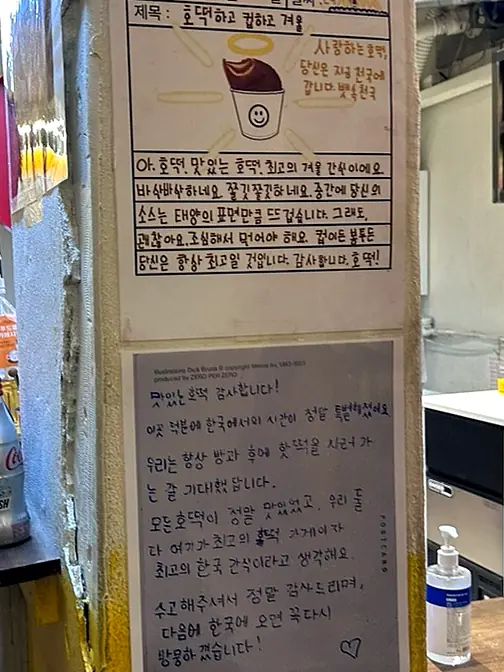 제목: 호떡하고 컵하고 겨울
사랑하는호떡,
당신은 지금 천국에
갑니다. 뱃속 천국
아, 호떡. 맛있는 호떡. 최고의 겨울 간식이에요.
바삭바삭하네요. 쫄깃쫄깃하네요. 중간에 당신의
소스는 태양의 표면만큼 뜨겁습니다. 그래도,
괜찮아요. 조심해서 먹어야 해요. 컵이든 봉투든
당신은 항상 최고일 것입니다. 감사합니다. 호떡!
Illustrations Dick Bruna © copyright Mercis bv, 1953-2023
produced by ZERO PER ZERO
맛있는 호떡 감사합니다!
이곳 덕분에 한국에서의 시간이 정말 특별해졌어요
우리는 항상 방과 후에 핫떡을 사러 가
는 걸 기대했답니다.
모든호떡이 정말 맛있었고, 우리 둘
다 여기가 최고의 호떡 가게이자
최고의 한국 간식이라고 생각해요.
수고해주셔서 정말 감사드리며,
다음에 한국에 오면 꼭 다시
방문하겠습니다!
POSTCARD